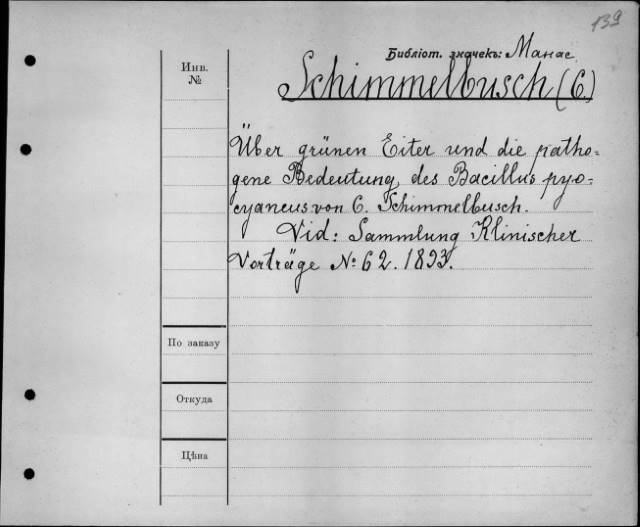 139
Библіот. значекъ: Манас
Инв.
№
Schimmelbusch (C.)
Über grünen Eiter und die patho-
gene Bedeutung des Bacillus pyo-
cyaneus von C. Schimmelbusch.
Vid: Sammlung Klinischer
Vorträge № 62. 1893.
По заказу
Откуда
Цѣна